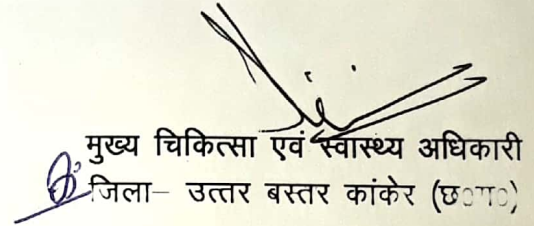 मुख्य चिकित्सा एवं स्वास्थ्य अधिकारी
जिला– उत्तर बस्तर कांकेर (छ०ग०)